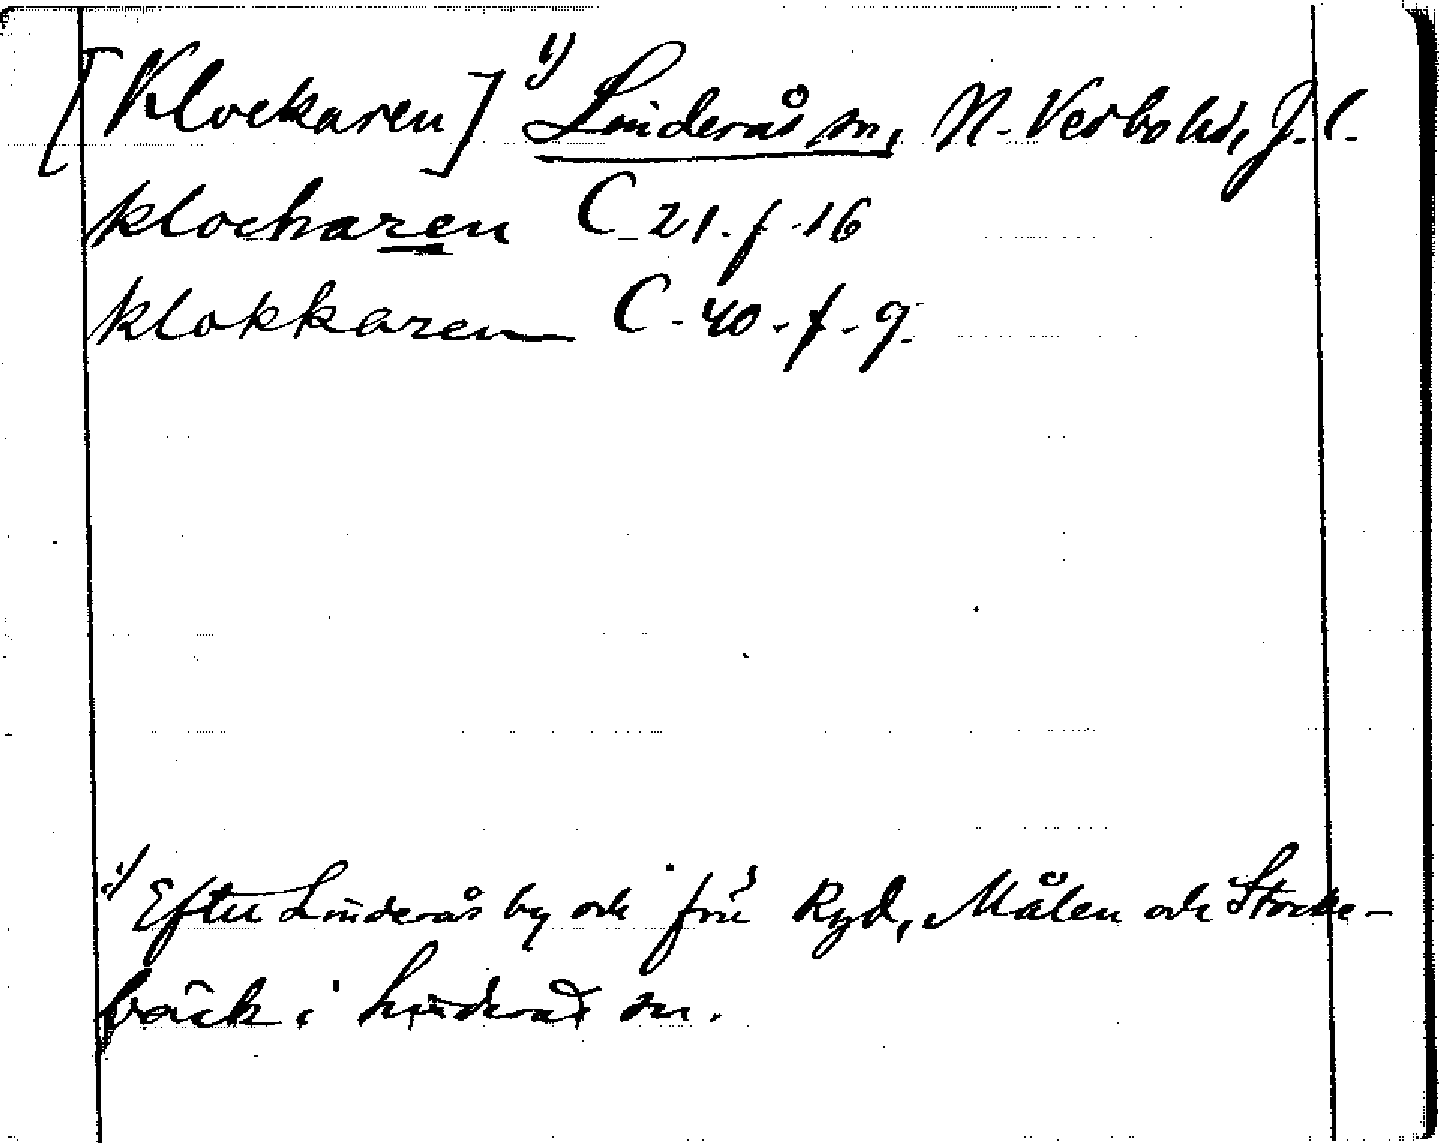 [Klockaren] 1) Linderås sn, N. Vedbo hd, J. l.
klocharen C 21. f. 16
klokkaren C. 40. f. 9.
1) Efter Linderås by och före Ryd, Målen och Stocke-
bäck i Linderås sn.